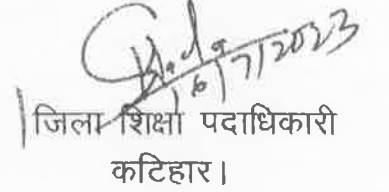 6/7/2023
जिला शिक्षा पदाधिकारी
कटिहार।